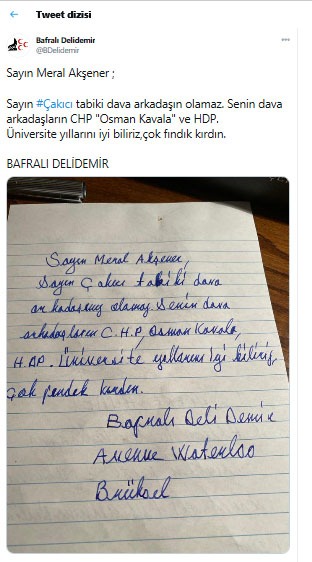 Tweet dizisi
Bafralı Delidemir
@BDelidemir
Sayın Meral Akşener ;
Sayın #Çakıcı tabiki dava arkadaşın olamaz. Senin dava
arkadaşların CHP "Osman Kavala" ve HDP.
Üniversite yıllarını iyi biliriz,çok fındık kırdın.
BAFRALI DELİDEMİR
Sayın Meral Akşener,
Sayın Çakıcı tabiki dava
arkadaşınız olamaz. Senin dava
arkadaşların C.H.P, Osman Kavala,
H.DP. Üniversite yıllarını iyi biliriz,
çok fındık kırdın.
Bafralı Deli Demir
Avenue Waterloo
Brüksel